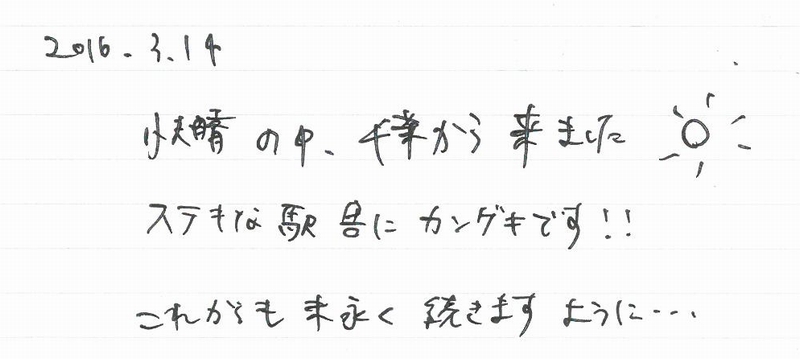 2016.3.14
快晴の中、千葉から来ました
ステキな駅舎にカンゲキです!!
これからも末永く続きますように…